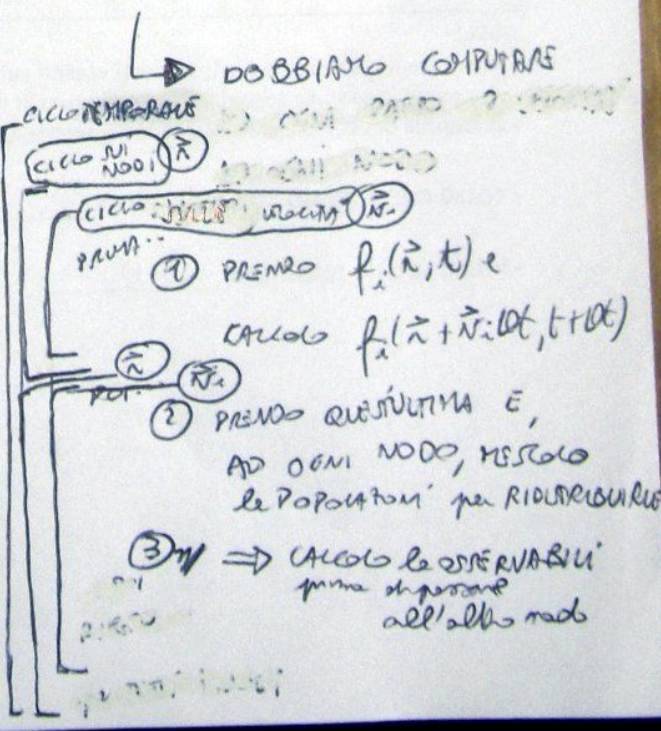 DOBBIAMO COMPUTARE
CICLO TEMPORALE
CICLO SUI NODI r⃗
CICLO SULLE VELOCITÀ v⃗i
PRIMA..
① PRENDO fi(r⃗,t) e
CALCOLO fi(r⃗+v⃗iΔt,t+Δt)
r⃗
v⃗i
POI..
② PRENDO QUEST'ULTIMA E,
AD OGNI NODO, MESCOLO
le POPOLAZIONI per RIDISTRIBUIRLE
③ ⇒ CALCOLO le OSSERVABILI
prima di passare
all'altro nodo